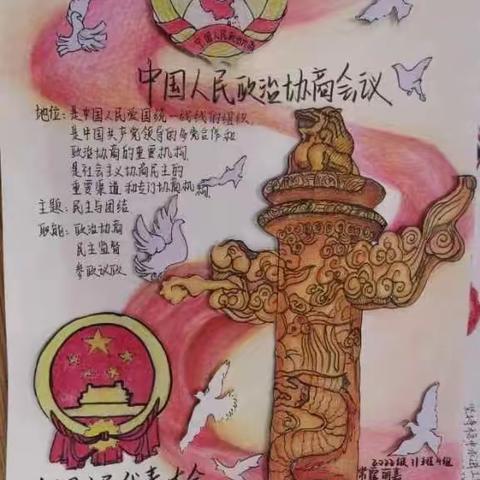 中国人民政治协商会议
地位：是中国人民爱国统一战线的组织，
是中国共产党领导的多党合作和
政治协商的重要机构
是社会主义协商民主的
重要渠道和专门协商机构
主题：民主与团结
职能：政治协商
民主监督
参政议政
2022级11班4组
代表大会